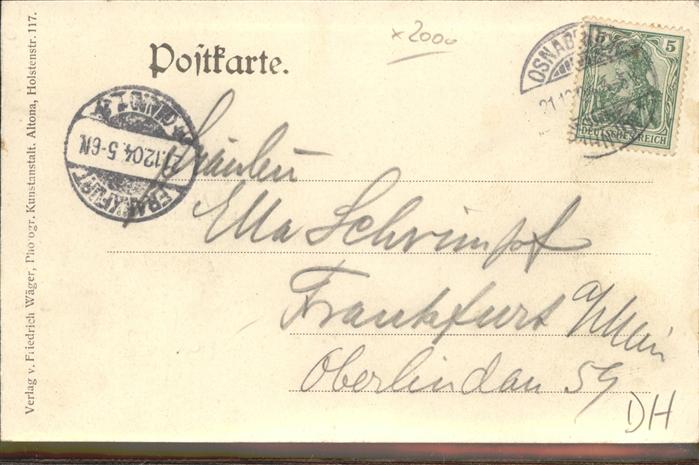 x2000
Postkarte.
5
DEUTSCHES REICH
OSNAB
21.12
FRANKFURT
.12.04.5-6N.
Fräulein
Ella Schrimpf
Frankfurt a/Main
Oberlindau 59
DH
Verlag v. Friedrich Wäger, Photogr. Kunstanstalt. Altona, Holstenstr. 117.